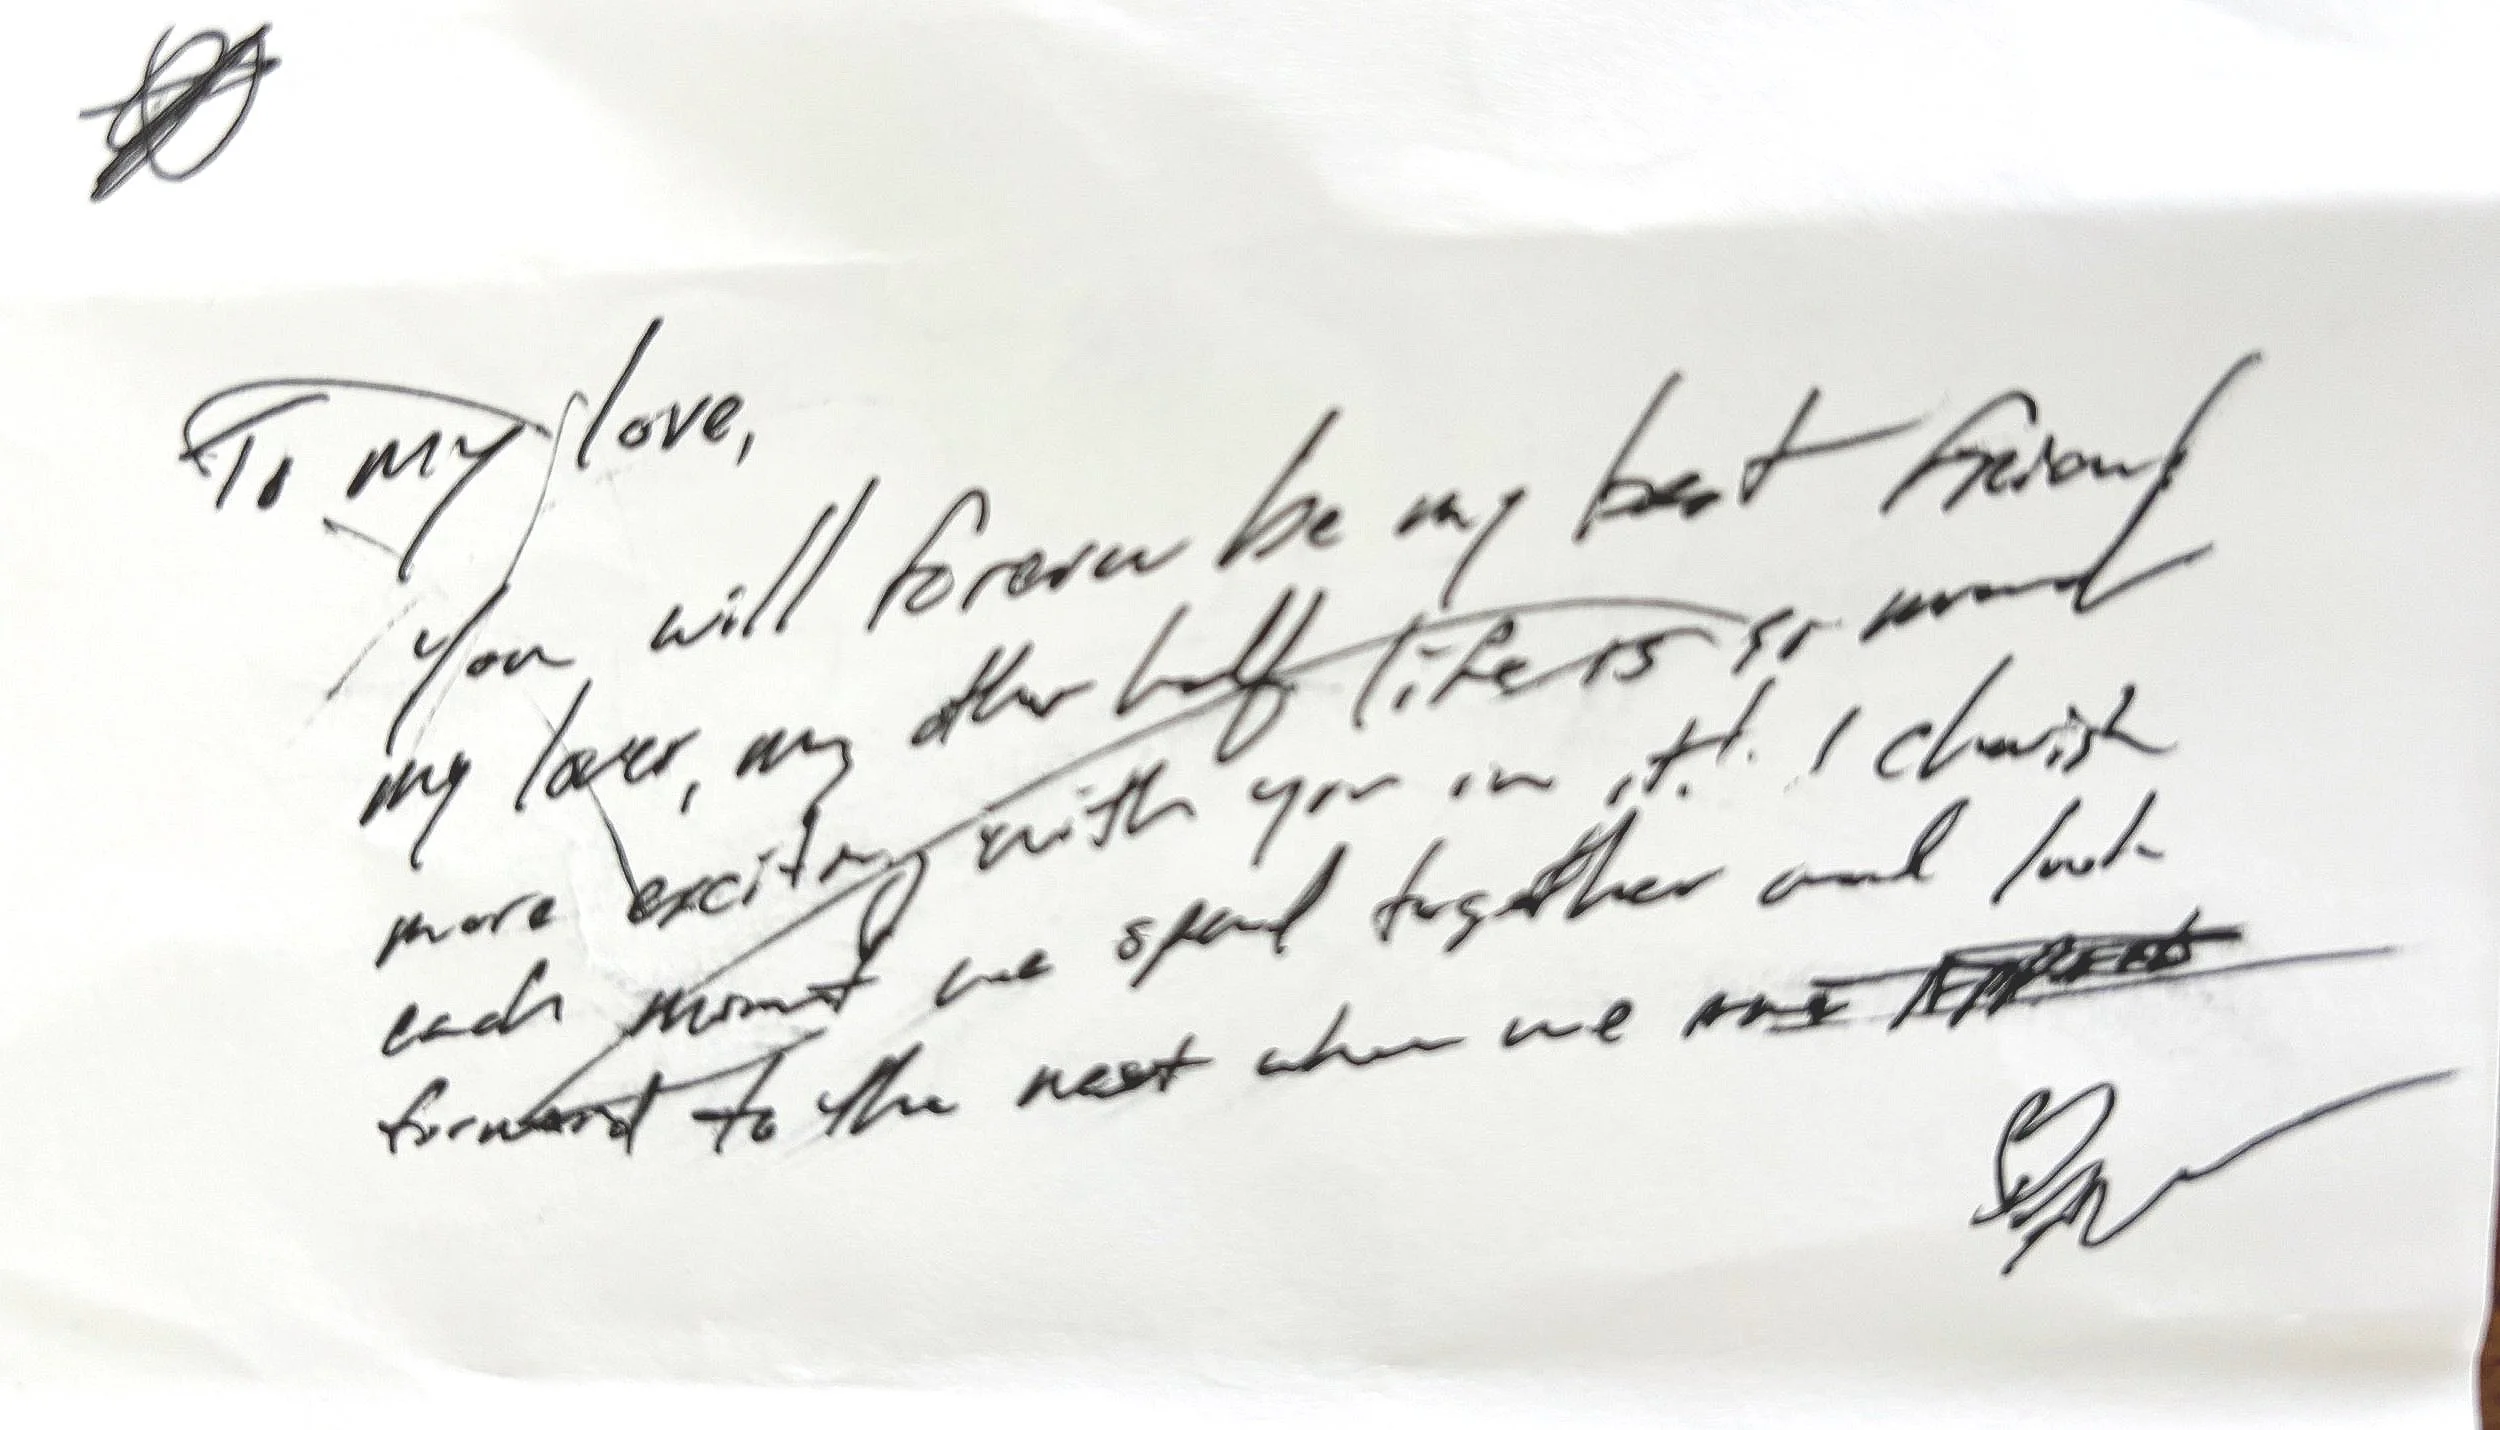 To my love,
You will forever be my best friend
my lover, my other half life is so much
more exciting with you in it! I cherish
each moment we spend together and look
forward to the next when we are